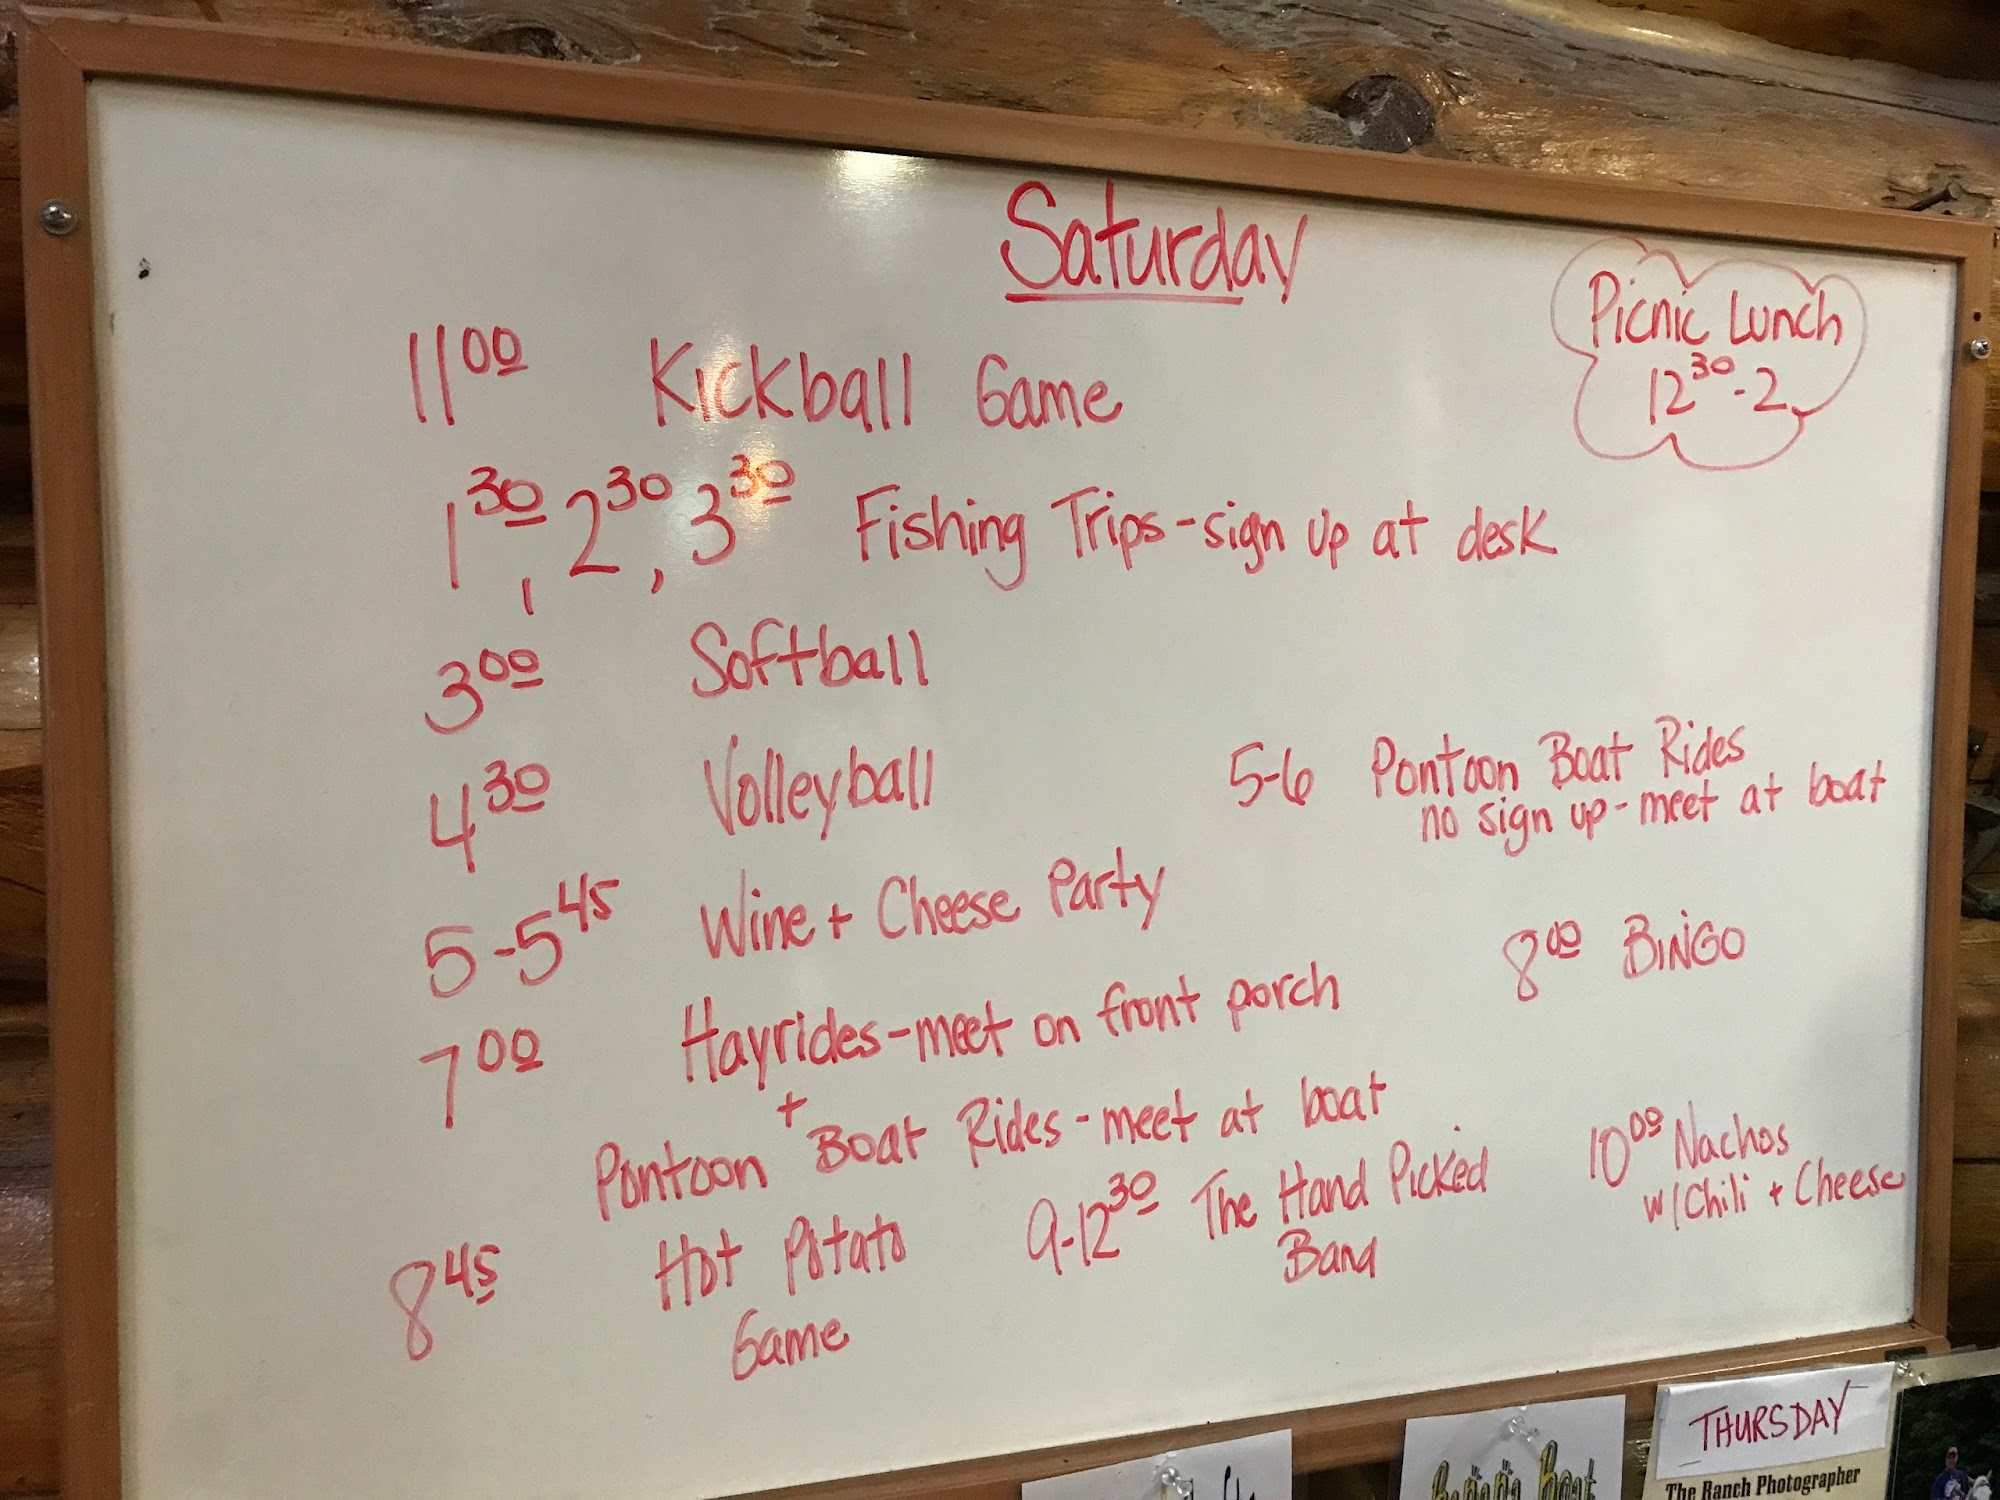 Saturday
Picnic Lunch
12³⁰-2
11⁰⁰ Kickball Game
1³⁰, 2³⁰, 3³⁰ Fishing Trips-sign up at desk
3⁰⁰ Softball
4³⁰ Volleyball
5-6 Pontoon Boat Rides
no sign up-meet at boat
5-5⁴⁵ Wine + Cheese Party
8⁰⁰ BiNGO
7⁰⁰ Hayrides-meet on front porch
+
Pontoon Boat Rides-meet at boat
8⁴⁵ Hot Potato
Game
9-12³⁰ The Hand Picked
Band
10⁰⁰ Nachos
w/Chili + Cheese
THURSDAY
The Ranch Photographer
Banana Boat